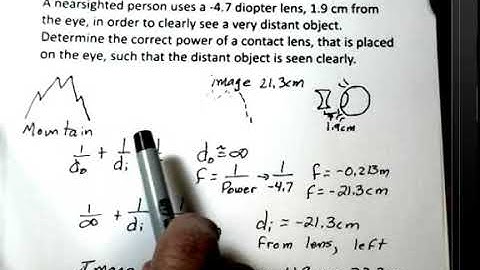 A nearsighted person uses a -4.7 diopter lens, 1.9 cm from
the eye, in order to clearly see a very distant object.
Determine the correct power of a contact lens, that is placed
on the eye, such that the distant object is seen clearly.
image 21.3cm
1.9cm
Mountain
1/do + 1/di
do ≅ ∞
f = 1/Power → 1/-4.7
f = -0.213m
f = -21.3cm
1/∞ + 1/di
di = -21.3cm
From lens, left
Image